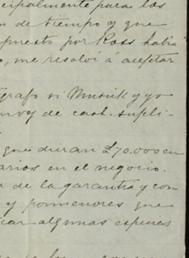 cipalmente para los
n de tiempo y que
puesto por Ross habia
, me resolví a aceptar
grafo si Musik y yo
de cash.
que durian £70.000 en
arios en el negocio.
a de la garantia y con
y pormenores que
car algunas